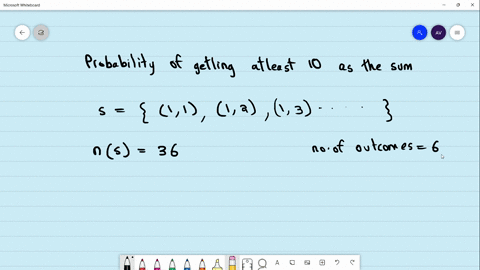 Microsoft Whiteboard
AV
Probability of getling atleast 10 as the sum
s = { (1,1), (1,2), (1,3) ..... }
n(s) = 36
no.of outcomes = 6